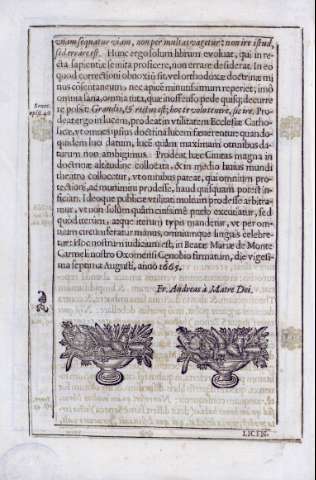 vnam sequatur viam, non per multas vagetur: non ire istud,
sed errare est. Hunc ergo solum librum evoluat, qui in re-
cta sapientiæ semita proficere, non errare desiderat. In eo
quod correctioni obnoxiũ sit, vel orthodoxæ doctrinæ mi-
nus consentaneum, nec apicẽ minutissimum reperiet; imò
omnia sana, omnia tuta, quæ inoffenso pede quisq; decurre-
re possit.
Senec.
epist. 40
Pro-
deat ergo in lucem, prodeat in vtilitatem Ecclesiæ Catho-
licæ, vt omnes ipsius doctrina lucem fæneretur: quando-
quidem suo datum, lucẽ quàm maximam omnibus da-
turum non ambigimus. Prodeat hæc Civitas magna in
doctrinæ altitudine collocata, & in medio huius mundi
theatro collocetur, vt omnibus pateat, qui omnium pro-
tectioni, ac munimini prodesse, haud quisquam potest in-
ficiari. Ideoque publicæ vtilitati multùm prodesse arbitra-
mur, vt non solùm quàm citissimè prælo excutiatur, sed
quod iterum, atque iterum typo mandetur, vt per om-
nium circunferatur manus, omniumque linguis celebre-
tur: isto e nostrum iudicium est, in Beatæ Mariæ de Monte
Carmeli nostro Oxomensi Cenobio firmatum, die vigesi-
ma septima Augusti, anno 1665.
Fr. Andreas à Matre Dei.
LICEN-